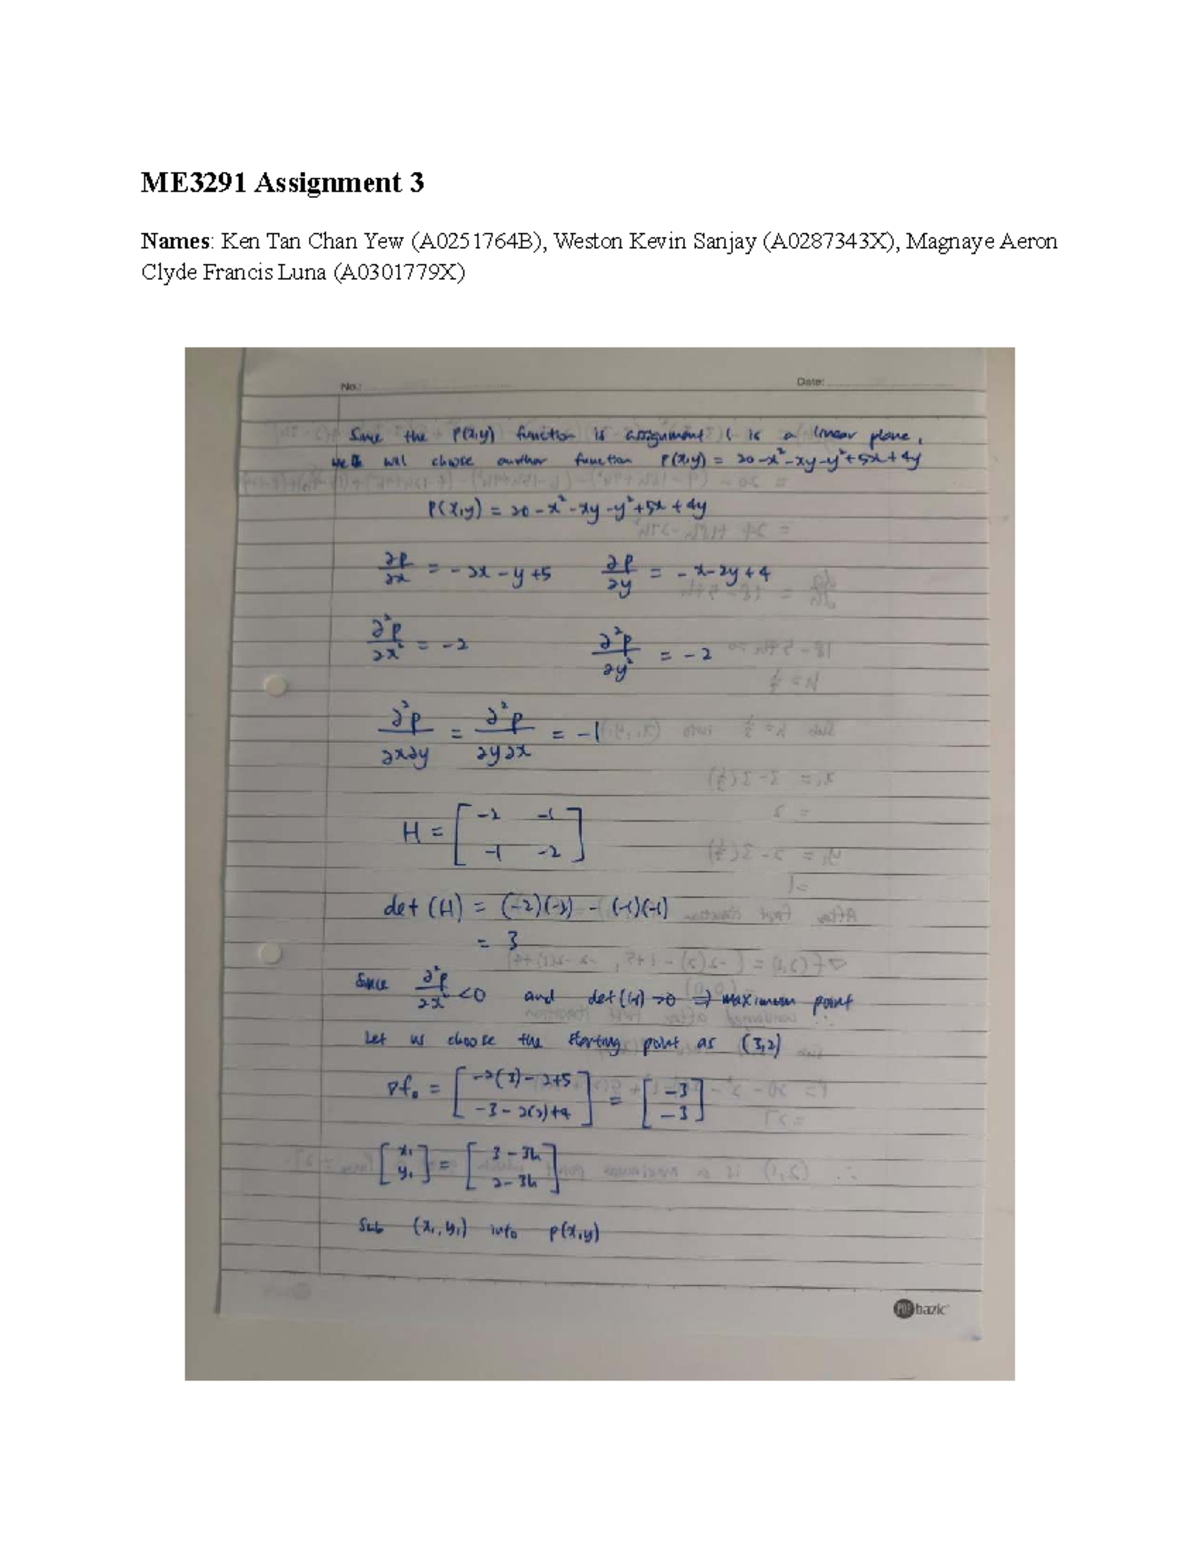 ME3291 Assignment 3
Names: Ken Tan Chan Yew (A0251764B), Weston Kevin Sanjay (A0287343X), Magnaye Aeron
Clyde Francis Luna (A0301779X)
No.: Date:
Since the P(x,y) function is assignment 1 is a linear plane,
we will choose another function P(x,y) = 20-x²-xy-y²+5x+4y
P(x,y) = 20-x²-xy-y²+5x+4y
∂P/∂x = -2x-y+5 ∂P/∂y = -x-2y+4
∂²P/∂x² = -2 ∂²P/∂y² = -2
∂²P/∂x∂y = ∂²P/∂y∂x = -1
H = [-2 -1; -1 -2]
det(H) = (-2)(-2) - (-1)(-1)
= 3
Since ∂²P/∂x² <0 and det(H) >0 ⇒ maximum point
Let us choose the starting point as (3,2)
∇f₀ = [-2(3)-2+5; -3-2(2)+4] = [-3; -3]
[x₁; y₁] = [3-3h; 2-3h]
Sub (x₁,y₁) into P(x,y)
POP bazic